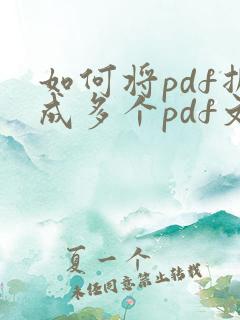 如何将pdf拆
成多个pdf文
夏一个
未经同意禁止转载